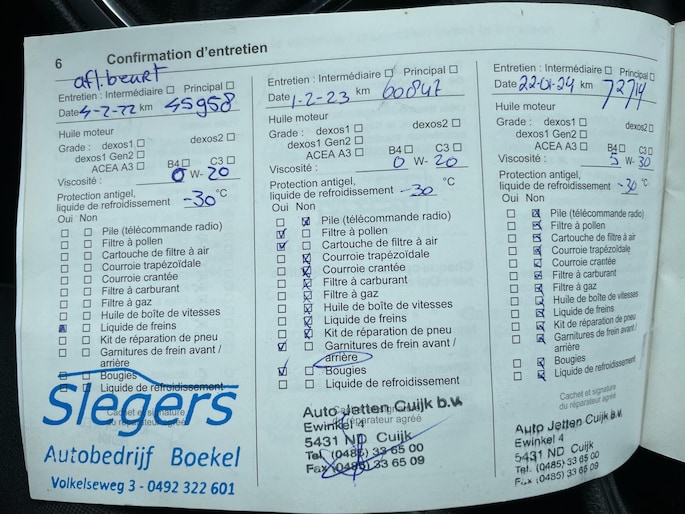 6 Confirmation d'entretien
afl.beurt
Entretien : Intermédiaire ☐ Principal ☐
Date 4-2-22 km 45958
Huile moteur
Grade : dexos1 ☐ dexos2 ☐
dexos1 Gen2 ☐
ACEA A3 ☐ B4 ☐ C3 ☐
Viscosité : 0 W- 20
Protection antigel,
liquide de refroidissement -30 °C
Oui Non
☐ ☐ Pile (télécommande radio)
☐ ☐ Filtre à pollen
☐ ☐ Cartouche de filtre à air
☐ ☐ Courroie trapézoïdale
☐ ☐ Courroie crantée
☐ ☐ Filtre à carburant
☐ ☐ Filtre à gaz
☐ ☐ Huile de boîte de vitesses
☒ ☐ Liquide de freins
☐ ☐ Kit de réparation de pneu
☐ ☐ Garnitures de frein avant /
arrière
☐ ☐ Bougies
☐ ☐ Liquide de refroidissement
Cachet et signature
du réparateur agréé
Slegers
Autobedrijf Boekel
Volkelseweg 3 - 0492 322 601
Entretien : Intermédiaire ☐ Principal ☐
Date 1-2-23 km 60847
Huile moteur
Grade : dexos1 ☐ dexos2 ☐
dexos1 Gen2 ☐
ACEA A3 ☐ B4 ☐ C3 ☐
Viscosité : 0 W- 20
Protection antigel,
liquide de refroidissement -30 °C
Oui Non
☐ ☒ Pile (télécommande radio)
☒ ☐ Filtre à pollen
☒ ☐ Cartouche de filtre à air
☐ ☒ Courroie trapézoïdale
☐ ☒ Courroie crantée
☐ ☒ Filtre à carburant
☐ ☒ Filtre à gaz
☐ ☒ Huile de boîte de vitesses
☐ ☒ Liquide de freins
☐ ☒ Kit de réparation de pneu
☒ ☐ Garnitures de frein avant /
arrière
☒ ☐ Bougies
☐ ☐ Liquide de refroidissement
Cachet et signature
du réparateur agréé
Auto Jetten Cuijk b.v.
Ewinkel 4
5431 ND Cuijk
Tel. (0485) 33 65 00
Fax (0485) 33 65 09
Entretien : Intermédiaire ☐ Principal ☐
Date 22-01-24 km 72714
Huile moteur
Grade : dexos1 ☐ dexos2 ☐
dexos1 Gen2 ☐
ACEA A3 ☐ B4 ☐ C3 ☐
Viscosité : 5 W- 30
Protection antigel,
liquide de refroidissement -30 °C
Oui Non
☐ ☒ Pile (télécommande radio)
☐ ☒ Filtre à pollen
☐ ☒ Cartouche de filtre à air
☐ ☒ Courroie trapézoïdale
☐ ☒ Courroie crantée
☐ ☒ Filtre à carburant
☐ ☒ Filtre à gaz
☐ ☒ Huile de boîte de vitesses
☐ ☒ Liquide de freins
☐ ☒ Kit de réparation de pneu
☐ ☒ Garnitures de frein avant /
arrière
☐ ☒ Bougies
☐ ☒ Liquide de refroidissement
Cachet et signature
du réparateur agréé
Auto Jetten Cuijk b.v.
Ewinkel 4
5431 ND Cuijk
Tel. (0485) 33 65 00
Fax (0485) 33 65 09